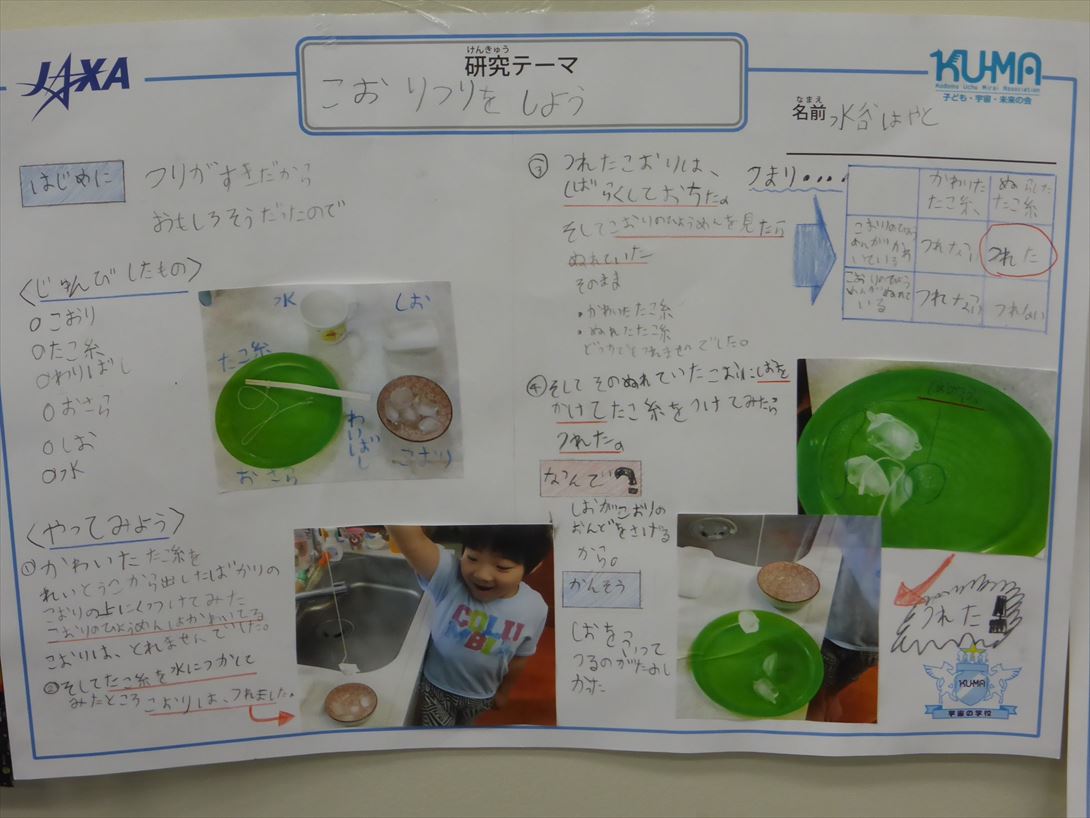 JAXA
けんきゅう
研究テーマ
こおりつりをしよう
KU-MA
Kodomo Uchu Mirai Association
子ども・宇宙・未来の会
なまえ
名前 水谷はやと
はじめに
つりがすきだから
おもしろそうだったので
〈じゅんびしたもの〉
○こおり
○たこ糸
○わりばし
○おさら
○しお
○水
水
しお
たこ糸
わりばし
おさら
こおり
〈やってみよう〉
①かわいたたこ糸を
れいとうこから出したばかりの
こおりの上にくっつけてみた
こおりのひょうめんはかわいてる
こおりは、とれませんでした。
②そしてたこ糸を水につかして
みたところこおりは、つれました。
③つれたこおりは、
しばらくしておちた。
そしてこおりのひょうめんを見たら
ぬれていた
そのまま
・かわいたたこ糸
・ぬれたたこ糸
どっかでもつれませんでした。
つまり・・・・
かわいた
たこ糸、
ぬらした
たこ糸
こおりのひょう
めんがかわ
いている
つれない
つれた
こおりのひょう
めんがぬれて
いる
つれない
つれない
④そしてそのぬれていたこおりにしおを
かけてたこ糸をつけてみたら
つれた。
なんで?
しおがこおりの
おんどをさげる
から。
かんそう
しおをふって
つるのがたのし
かった
つれた!
KU-MA
宇宙の学校